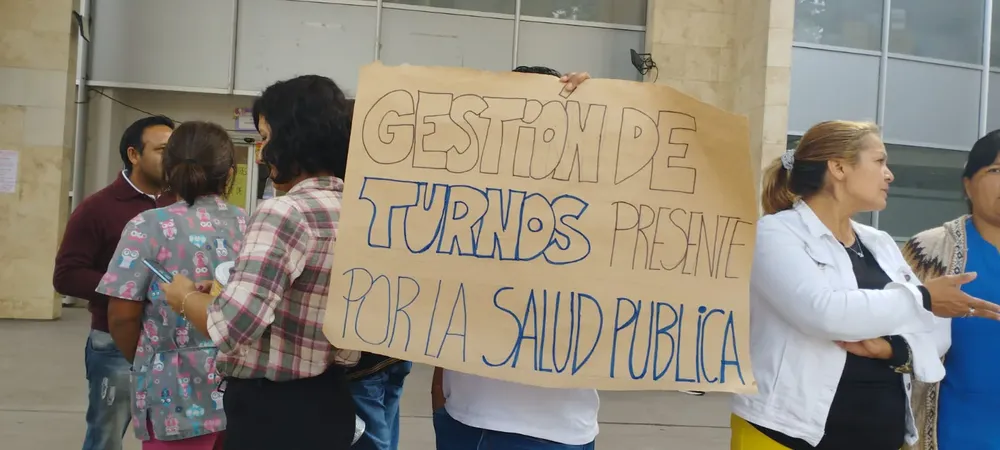 GESTIÓN DE
TURNOS PRESENTE
POR LA SALUD PUBLICA